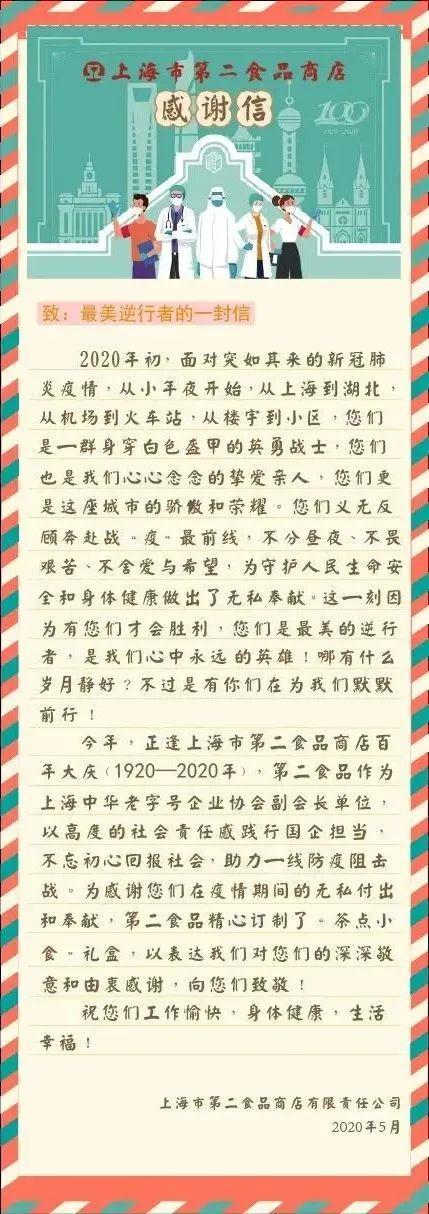 上海市第二食品商店
感谢信
100
1920-2020
致：最美逆行者的一封信
2020年初，面对突如其来的新冠肺
炎疫情，从小年夜开始，从上海到湖北，
从机场到火车站，从楼宇到小区，您们
是一群身穿白色盔甲的英勇战士，您们
也是我们心心念念的挚爱亲人，您们更
是这座城市的骄傲和荣耀。您们义无反
顾奔赴战“疫”最前线，不分昼夜、不畏
艰苦、不舍爱与希望，为守护人民生命安
全和身体健康做出了无私奉献。这一刻因
为有您们才会胜利，您们是最美的逆行
者，是我们心中永远的英雄！哪有什么
岁月静好？不过是有你们在为我们默默
前行！
今年，正逢上海市第二食品商店百
年大庆（1920—2020年），第二食品作为
上海中华老字号企业协会副会长单位，
以高度的社会责任感践行国企担当，
不忘初心回报社会，助力一线防疫阻击
战。为感谢您们在疫情期间的无私付出
和奉献，第二食品精心订制了“茶点小
食”礼盒，以表达我们对您们的深深敬
意和由衷感谢，向您们致敬！
祝您们工作愉快，身体健康，生活
幸福！
上海市第二食品商店有限责任公司
2020年5月